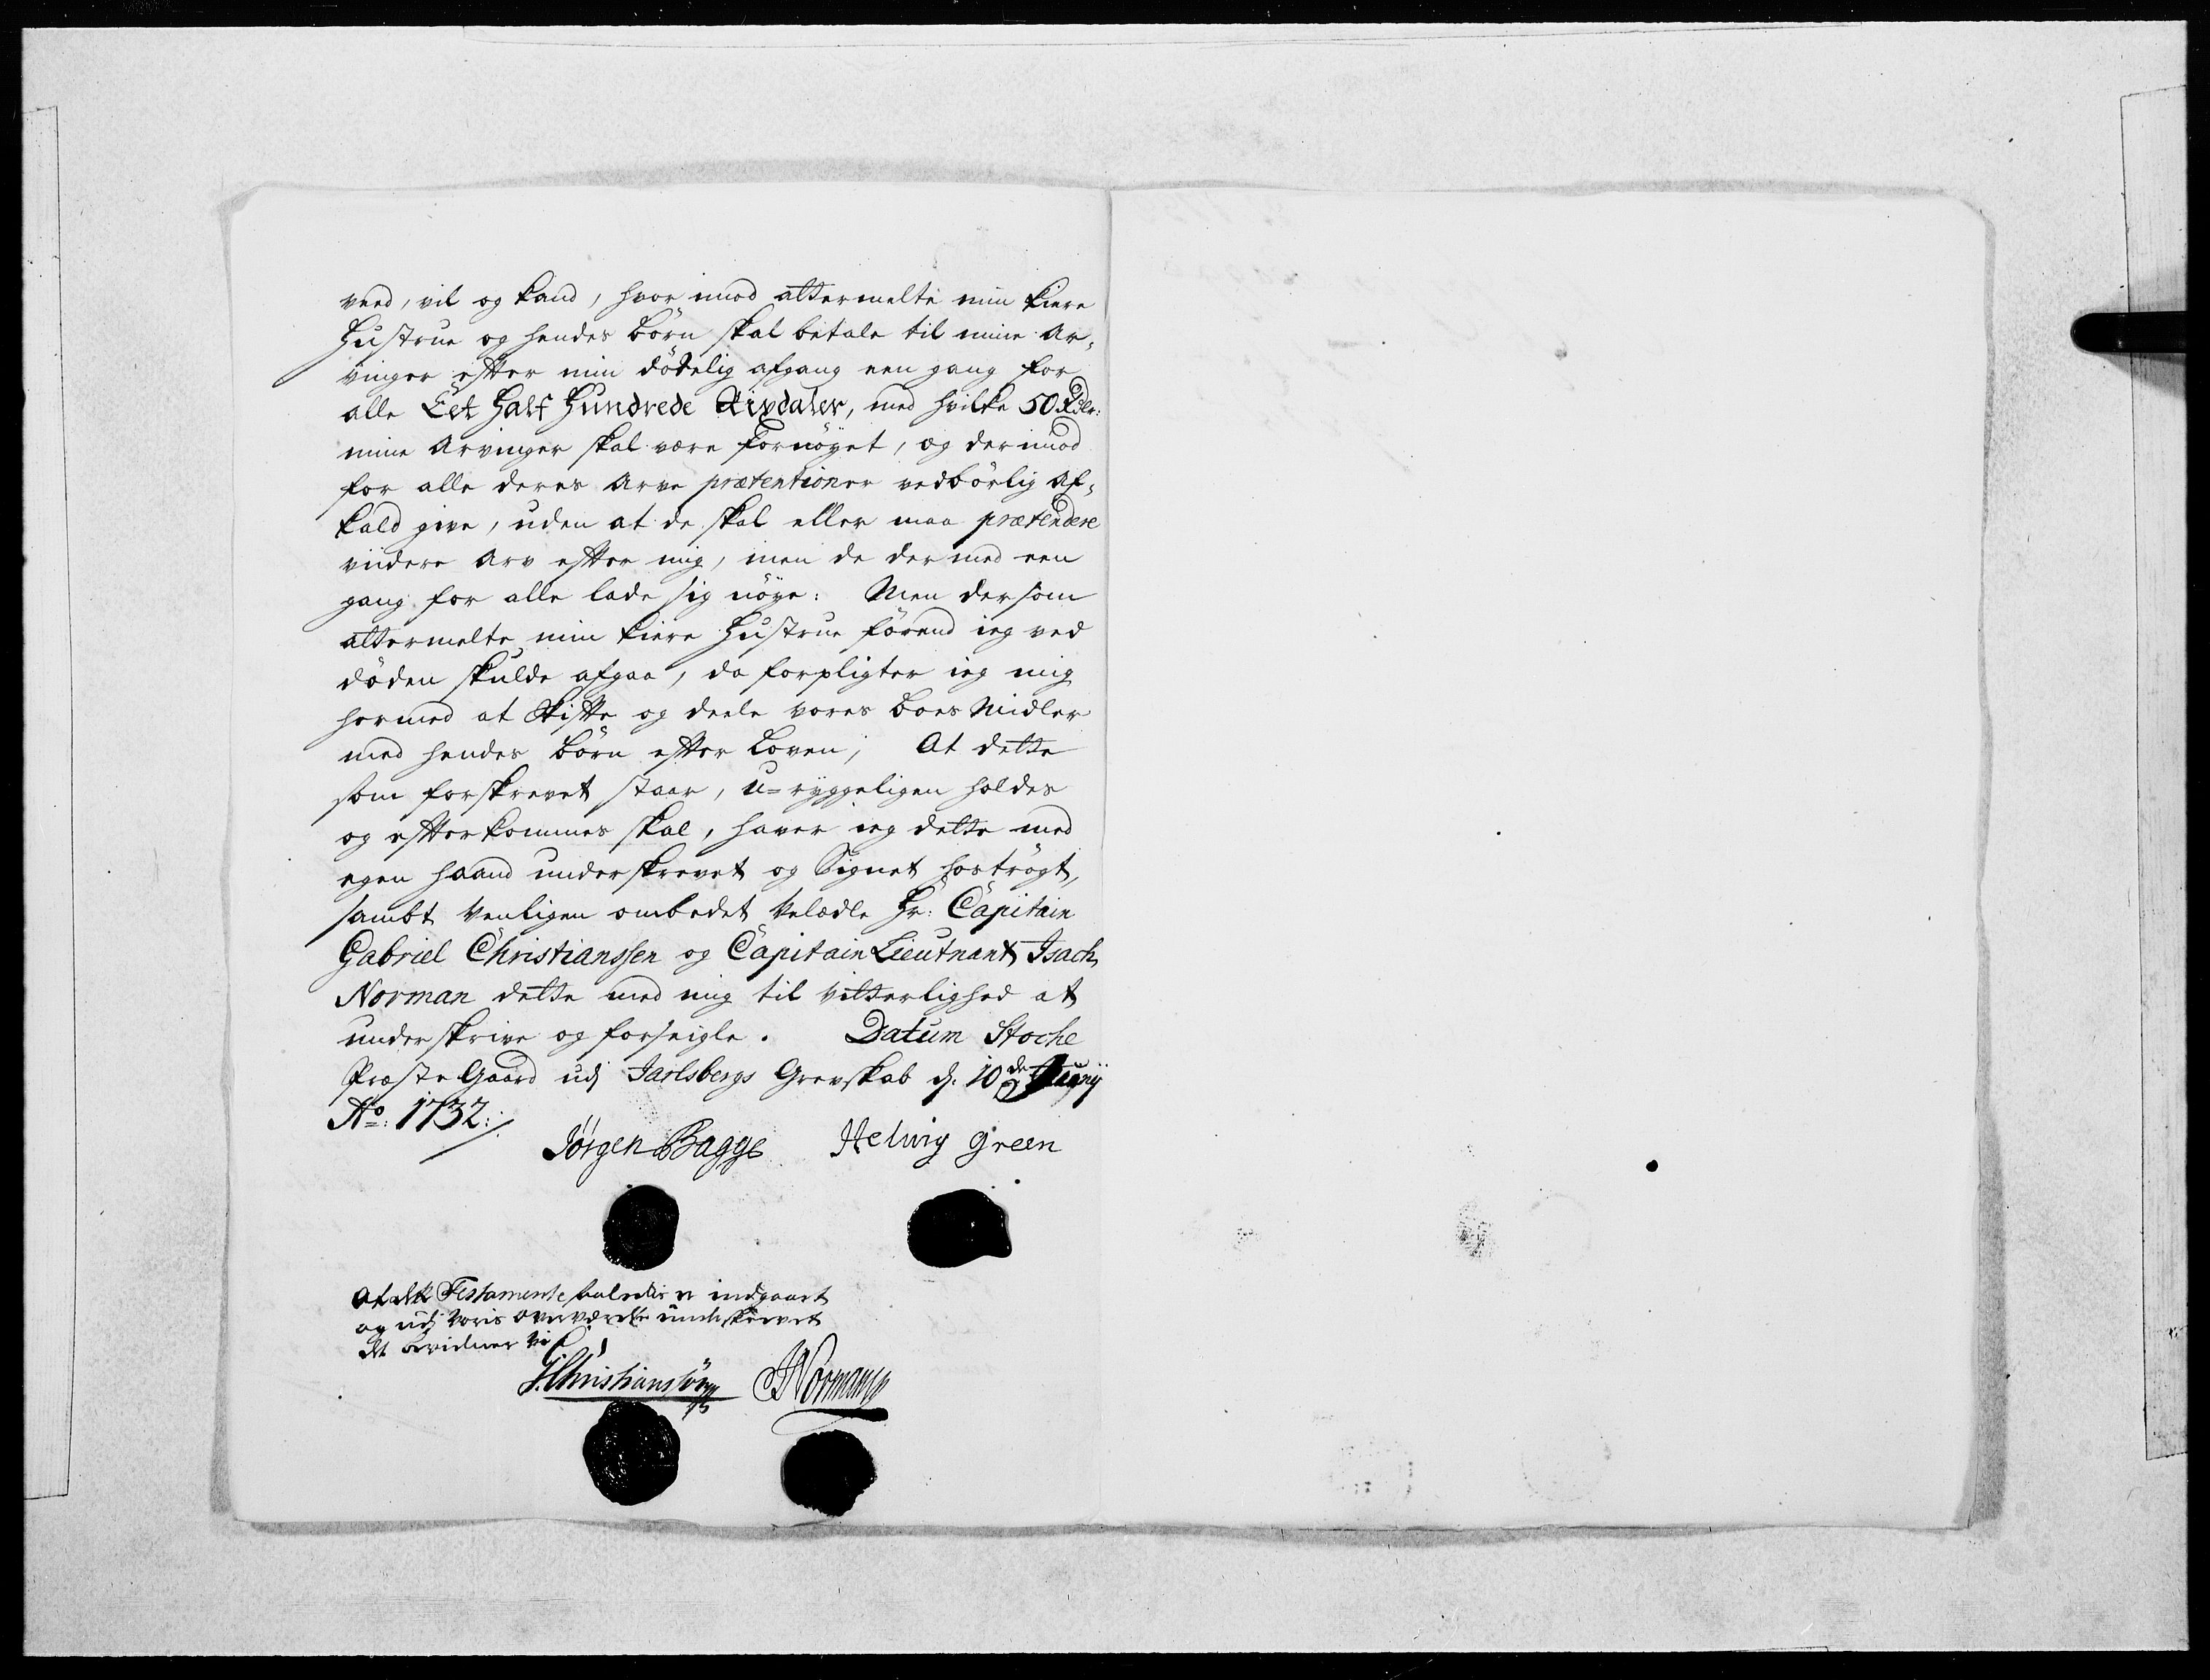 veed, vil og kand, hvor imod altermelte min kiere
Hustrue og hendes börn skal betale til mine Ar-
vinger efter min dödelig afgang een gang for
alle Eet Half Hundrede Rixdaler, med hvilke 50 Rdlr:
mine Arvinger skal være fornöyet, og der imod
for alle deres Arve prætentioner vedbörlig Af-
kald give, uden at de skal eller maa prætendere
viidere Arv efter mig, men de der med een
gang for alle lade sig nöye: Men dersom
altermelte min kiere Hustrue förend ieg ved
döden skulde afgaa, da forpligter ieg mig
hermed at Skifte og deele vores boes Midler
med hendes börn efter Loven; At dette
som forskrevet staar, u-ryggeligen holdes
og efterkommes skal, haver ieg dette med
egen haand underskrevet og Signet hoströgt,
sambt venligen ombedet Velædle Hr: Capitain
Gabriel Christianssen og Capitain Lieutnant Isach
Norman dette med mig til vitterlighed at
underskrive og forseigle. Datum Stocke
Præste Gaard udj Jarlsbergs Grevskab d. 10de
Ao: 1732:
Jörgen Bagge Helwig Green
At dette Testamente saaledes er indgaaet
og udj Voris overværelse underskrevet
det bevidner Vi
G. Christiansön JNorman